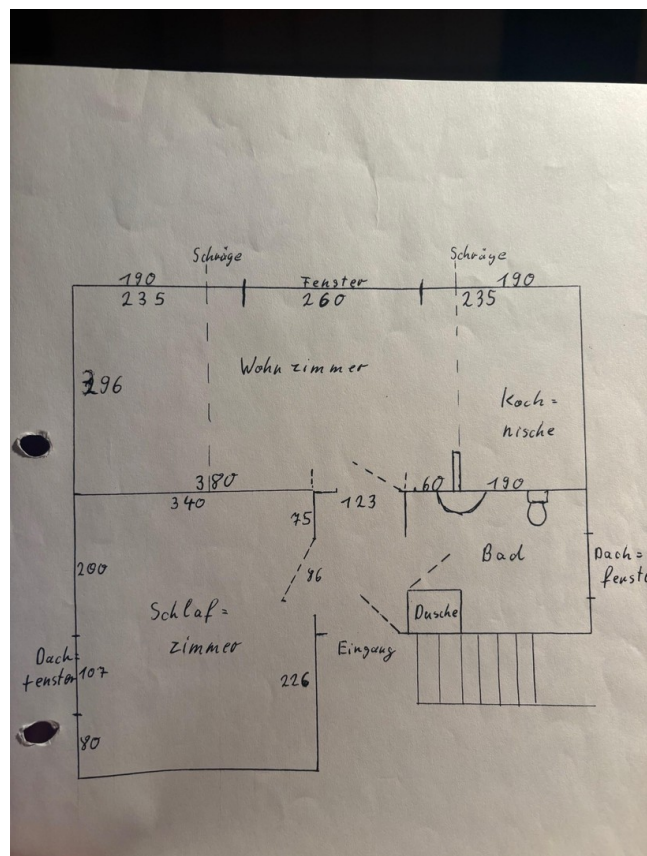 Schräge
Schräge
190
Fenster
190
235
260
235
Wohnzimmer
296
Koch=
nische
380
60
190
340
123
75
Bad
Dach=
fenste
200
96
Schlaf=
zimmer
Dusche
Eingang
Dach=
fenster
107
226
80